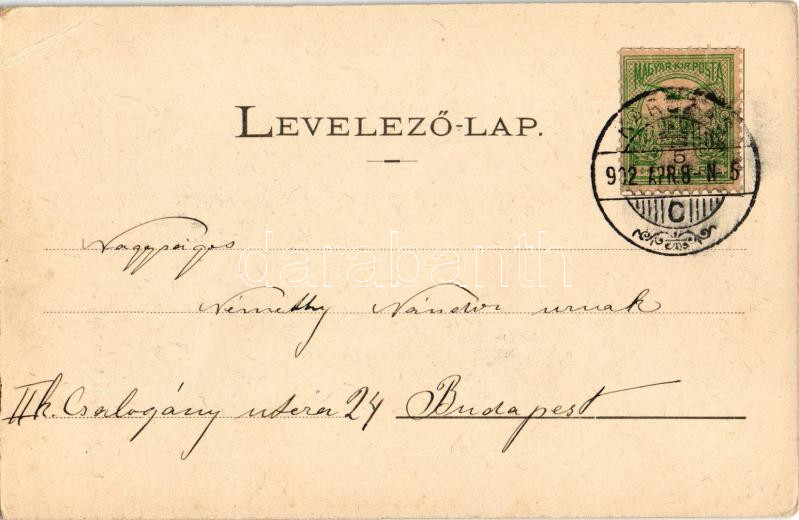 MAGYAR KIR. POSTA
LEVELEZŐ-LAP.
5
902 APR. 8 - N 5
C
Nagyságos
darabanth
Némethy Nándor urnak
IIk. Csalogány utcza 24 Budapest